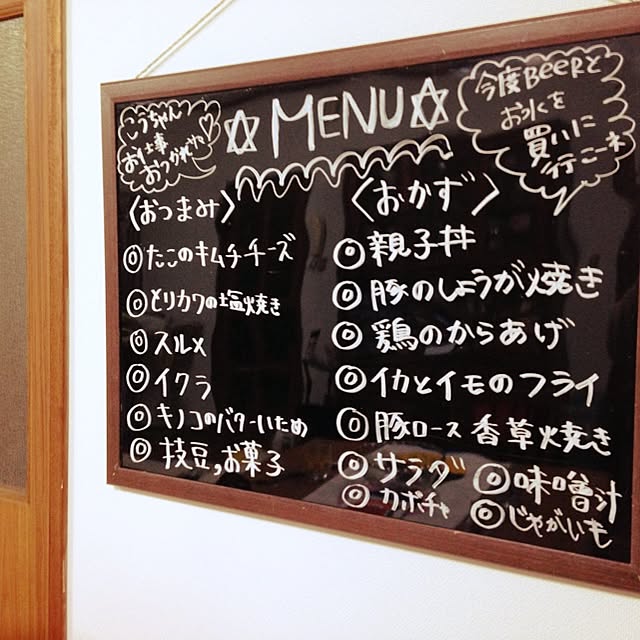 こうちゃん
お仕事
おつかれ
☆MENU☆
今度BEERと
お水を
買いに
行こーネ
〈おつまみ〉
◎たこのキムチチーズ
◎とりカワの塩焼き
◎スルメ
◎イクラ
◎キノコのバターいため
◎枝豆,お菓子
〈おかず〉
◎親子丼
◎豚のしょうが焼き
◎鶏のからあげ
◎イカとイモのフライ
◎豚ロース香草焼き
◎サラダ ◎味噌汁
◎カボチャ ◎じゃがいも